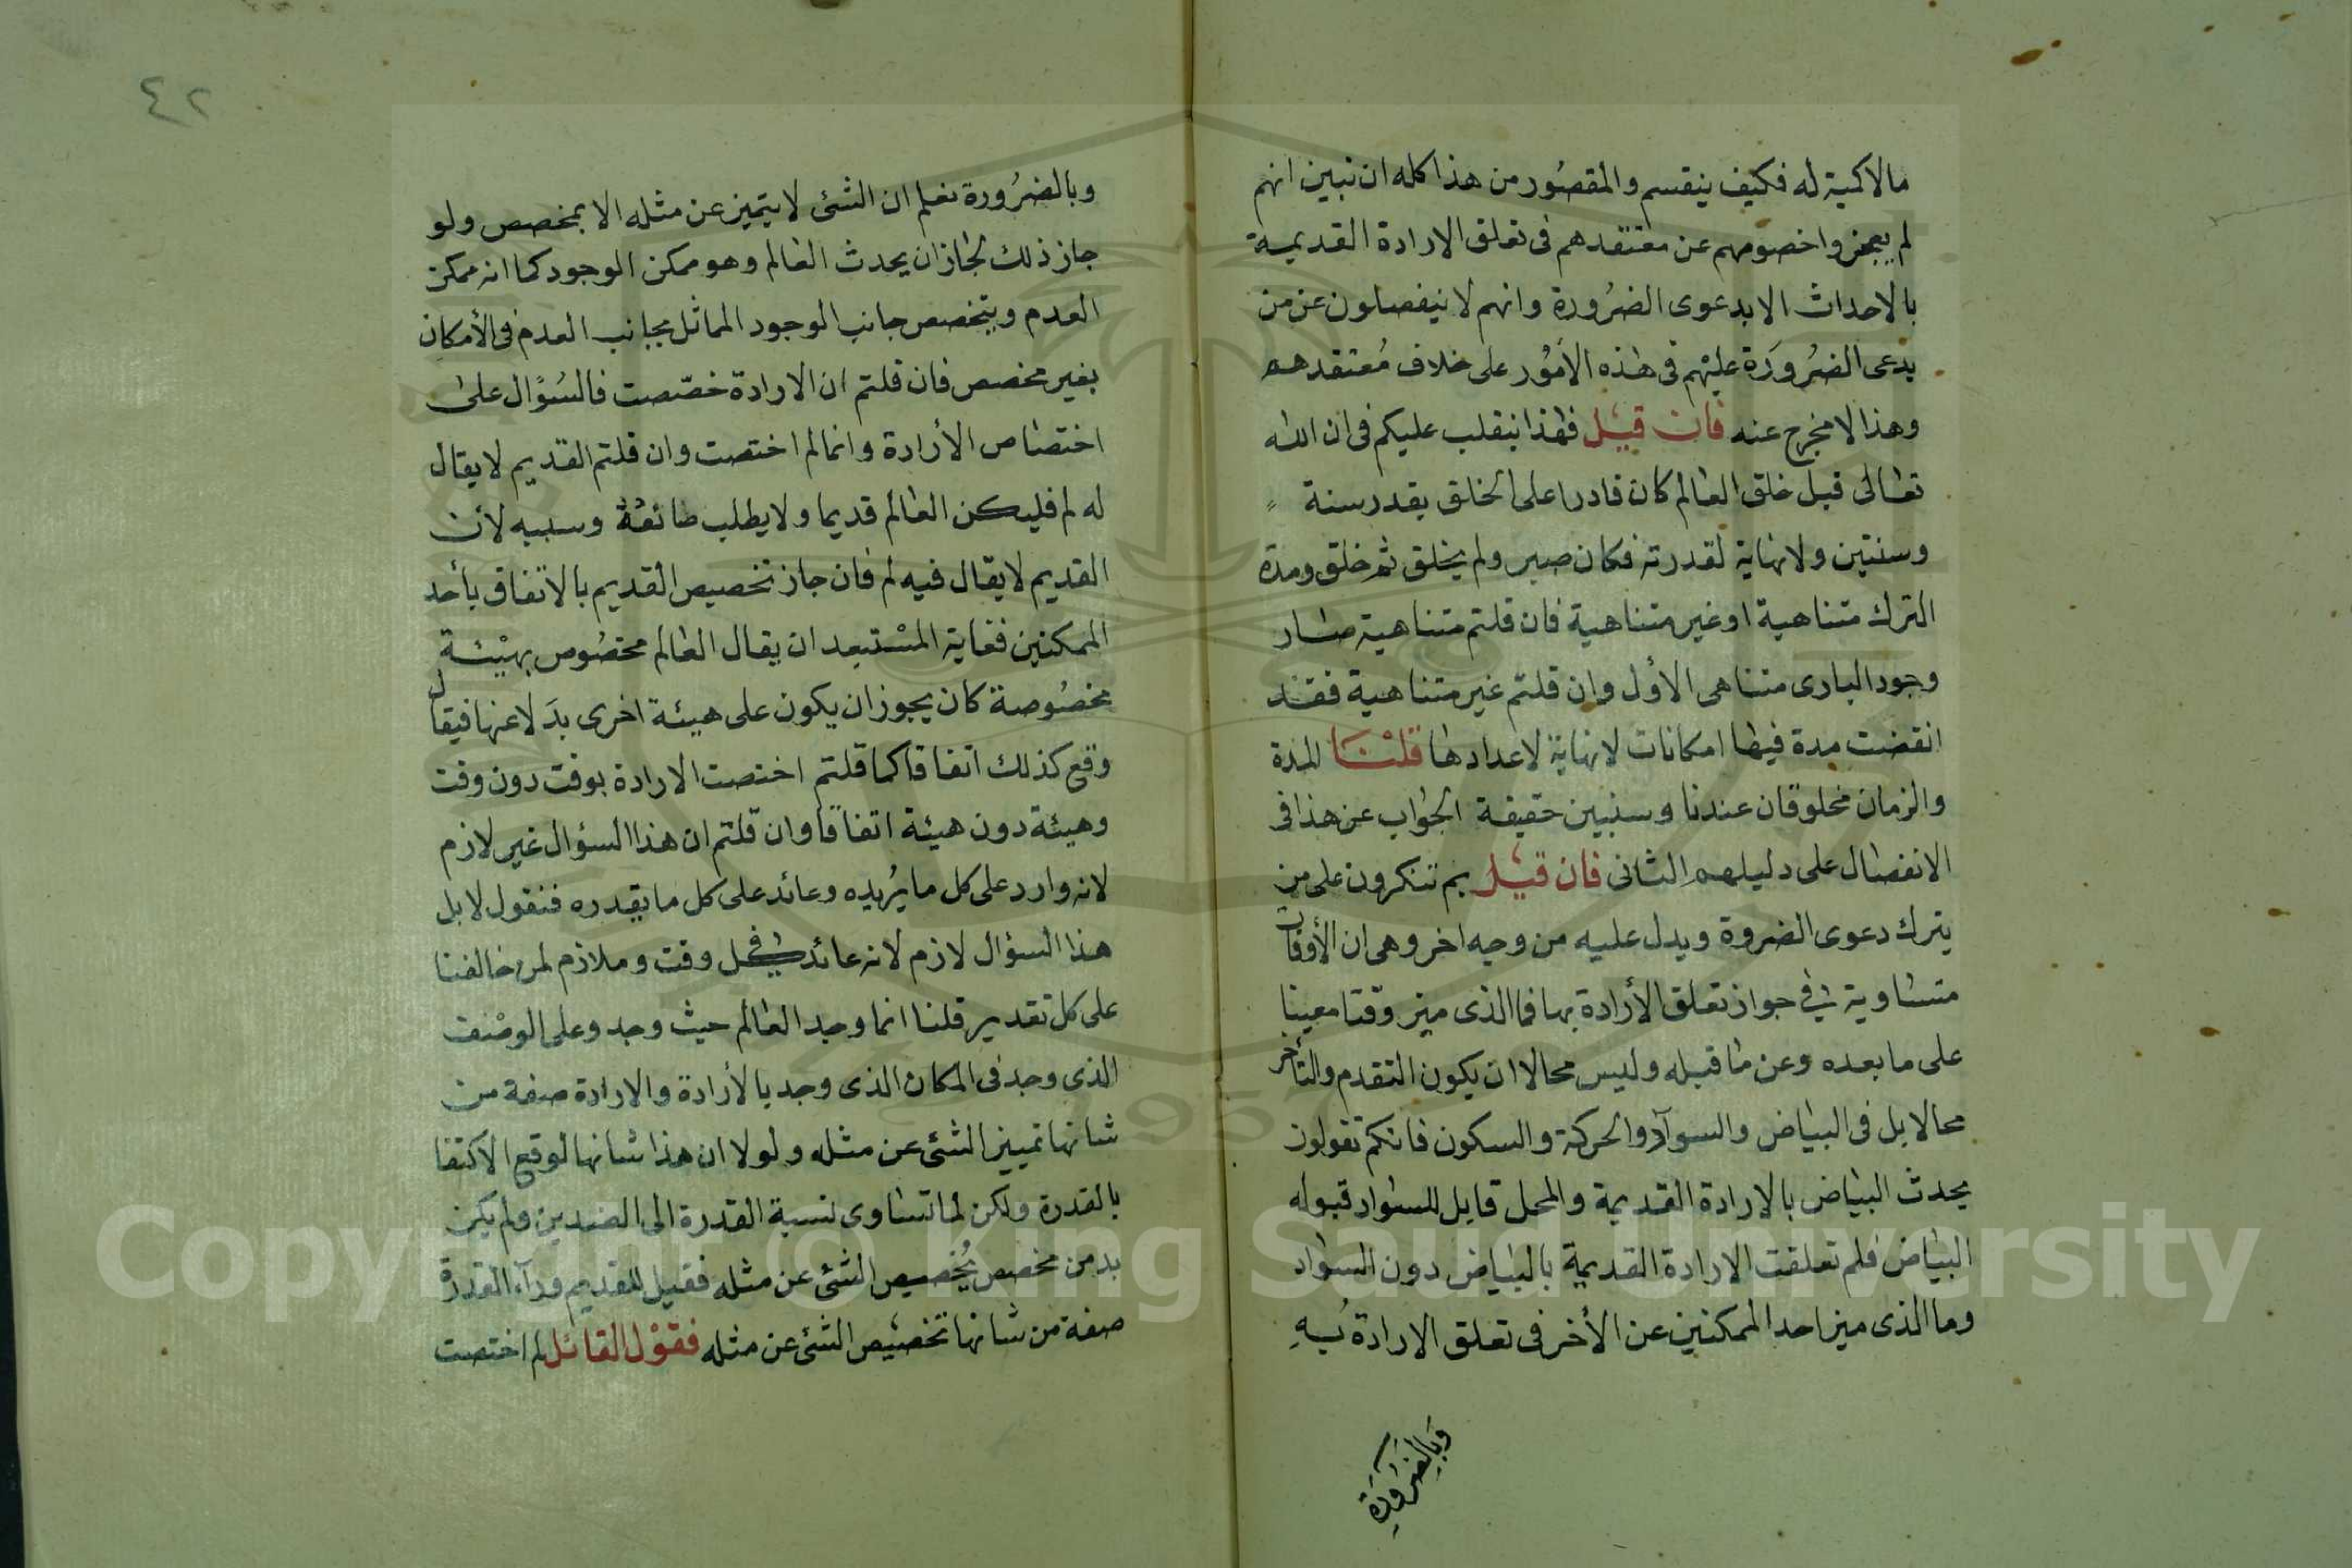 مالاكمية له فكيف ينقسم والمقصُور من هذا كله ان نبين انهم
لم يعجزوا خصومهم عن معتقدهم فى تعلق الارادة القديمة
بالاحداث الا بدعوى الضرُورة وانهم لا ينفصلون عن من
يدعى الضرُورَة عليْهم فى هذه الأمُور على خلاف مُعتقدهم
وهذا لا مخرج عنه فان قيْل فهٰذا ينقلب عليكم فى ان الله
تعالى قبل خلق العالم كان قادرا على الخلق بقدر سنة
وسنتين ولا نهاية لقدرته فكان صبر ولم يخلق ثم خلق ومدة
الترك متناهية او غير متناهية فان قلتم متناهية صار
وجود البارى متناهى الأول وان قلتم غير متناهية فقد
انقضت مدة فيها امكانات لا نهاية لاعدادها قلنَا المدة
والزمان مخلوقان عندنا وسنبين حقيقة الجواب عن هذا فى
الانفصال على دليلهم الثانى فان قيْل بم تنكرون على من
يترك دعوى الضروة ويدل عليه من وجه اخر وهى ان الأوقات
متساوية فى جواز تعلق الأرادة بها فما الذى ميز وقتا معينا
على ما بعده وعن ما قبله وليس محالا ان يكون التقدم والتأخر
محالا بل فى البياض والسوآد والحركة والسكون فانكم تقولون
يحدث البياض بالارادة القديمة والمحل قابل للسواد قبوله
البياض فلم تعلقت الارادة القديمة بالبياض دون السواد
وما الذى ميز احد الممكنين عن الأخر فى تعلق الارادة بُهِ
وَبالِضَرورَةِ
٤٢
وبالضرُورة نعلم ان الشئ لا يتميز عن مثله الا بمخصص ولو
جاز ذلك لجاز ان يحدث العالم وهو ممكن الوجود كما انه ممكن
العدم ويتخصص جانب الوجود المماثل بجانب العدم فى الأمكان
بغير مخصص فان قلتم ان الارادة خصّصت فالسُؤال على
اختصاص الأرادة وانما لم اختصت وان قلتم القديم لا يقال
له لم فليكن العالم قديما ولا يطلب صانعهُ وسببه لأن
القديم لا يقال فيه لم فان جاز تخصيص القديم بالاتفاق بأحد
الممكنين فغاية المسْتبعد ان يقال العالم مخصُوص بهيْئة
مخصُوصة كان يجوز ان يكون على هيئة اخرى بدَلا عنها فيقال
وقع كذلك اتفاقا كما قلتم اختصت الارادة بوقت دون وقت
وهيئة دون هيئة اتفاقا وان قلتم ان هذا السؤال غير لازم
لانه وارد على كل ما يرُيده وعائد على كل ما يقدره فنقول لا بل
هذا السؤال لازم لانه عائد فى كل وقت وملازم لمن خالفنا
على كل تقدير قلنا انما وجد العالم حيث وجد وعلى الوصْف
الذى وجد فى المكان الذى وجد بالأرادة والارادة صفة من
شانها تمييز الشئ عن مثله ولولا ان هذا شانها لوقع الاكتفا
بالقدرة ولكن لما تساوى نسبة القدرة الى الضدين ولم يكن
بد من مخصص يُخصيص الشئ عن مثله فقيل للقديم ورآء القدرة
صفة من شانها تخصيص الشئ عن مثله فقوْل القائل لم اختصت
Copyright © King Saud University
1957